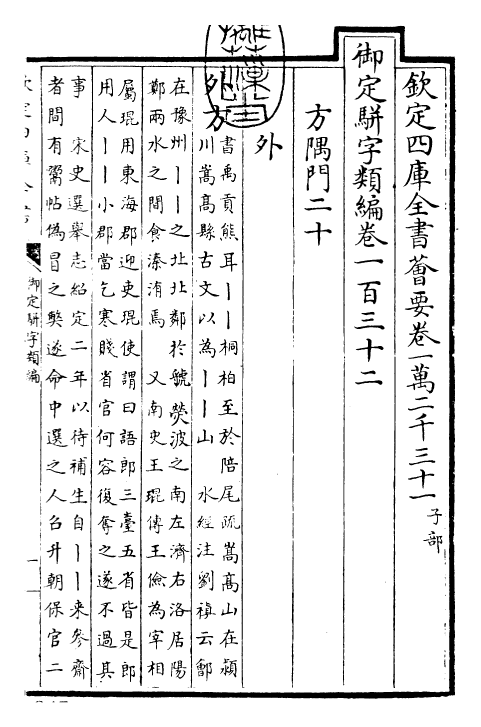 欽定四庫全書薈要卷一萬二千三十一 子部
御定駢字類編卷一百三十二
方隅門二十
外
外方
書禹貢熊耳丨丨桐柏至於陪尾疏嵩高山在潁
川嵩高縣古文以為丨丨山 水經注劉禎云鄶
在豫州丨丨之北北鄰於虢滎波之南左濟右洛居陽
鄭兩水之間食溱洧焉 又南史王琨傳王儉為宰相
屬琨用東海郡迎吏琨使謂曰語郎三臺五省皆是郎
用人丨丨小郡當乞寒賤省官何容復奪之遂不過其
事 宋史選舉志紹定二年以待補生自丨丨來參齋
者間有鬻帖偽冒之弊遂命中選之人召升朝保官二
御定駢字類編
一